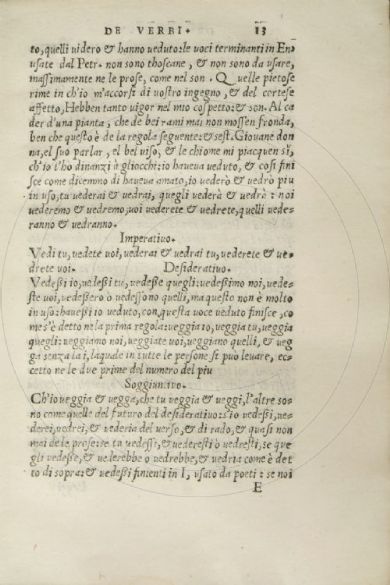 DE VERBI. 13
to, quelli uidero & hanno ueduto: le uoci terminanti in Eno
usate dal Petr. non sono thoscane, & non sono da usare,
massimamente ne le prose, come nel son. Quelle pietose
rime in ch'io m'accorsi di uostro ingegno, & del cortese
affetto, Hebben tanto uigor nel mio cospetto: & son. Al ca
der d'una pianta, che de bei rami mai non mossen fronda,
ben che questo è de la regola seguente: & sest. Giouane don
na, el suo parlar, el bel uiso, & le chiome mi piacquen sì,
ch'io l'ho dinanzi à gliocchi: io haueua ueduto, & così fini
sce come dicemno di haueua amato, io uederò & uedro piu
in uso, tu uederai & uedrai, quegli uederà & uedrà: noi
uederemo & uedremo, uoi uederete & uedrete, quelli uede-
ranno & uedranno.
Imperatiuo.
Vedi tu, uedete uoi, uederai & uedrai tu, uederete & ue-
drete uoi. Desideratiuo.
Vedeßi io, uedeßi tu, uedeße quegli: uedeßimo noi, uede-
ste uoi, uedeßero ò uedessono quelli, ma questo non è molto
in uso: haueßi io ueduto, con, questa uoce ueduto finisce, co
me s'è detto ne la prima regola: ueggia io, ueggia tu, ueggia
quegli: ueggiamo noi, ueggiate uoi, ueggiano quelli, & ueg
ga senza la i, laquale in tutte le persone si puo leuare, ec-
cetto ne le due prime del numero del piu
Soggiuntiuo.
Ch'io ueggia & uegga, che tu ueggia & ueggi, l'altre so-
no come quelle del futuro del desideratiuo: s'io uedeßi, ue-
derei, uedrei, & uederia del uerso, & di rado, & quasi non
mai de le prose: se tu uedessi, & uederesti ò uedresti, se que
gli uedeße, & uederebbe o uedrebbe, & uedria come è det
to di sopra: & uedeßi finienti in I, usato da poeti: se noi
E